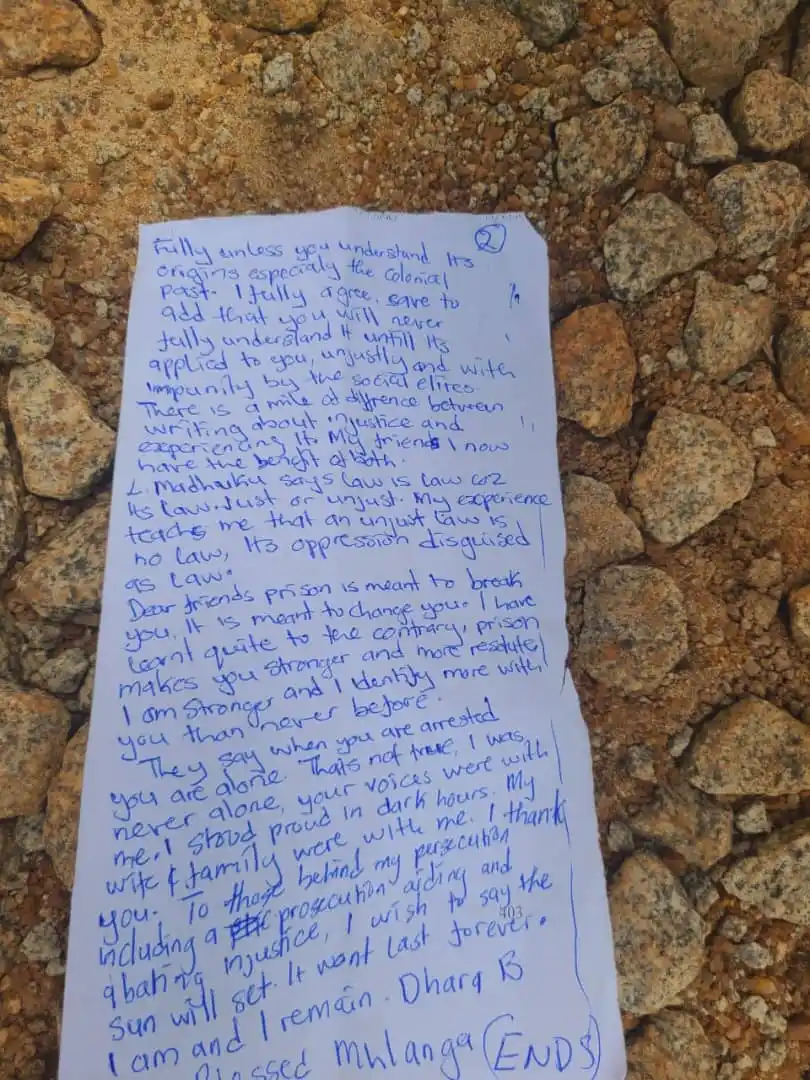 ②
Fully unless you understand its
origins especialy the colonial
past. I fully agree, save to
add that you will never
fully understand it untill its
applied to you, unjustly and with
impunity by the social elites.
There is a mile of diffrence between
writing about injustice and
experiencing it. My friends I now
have the benefit of both.
L. Madhuku says law is law coz
its law. Just or unjust. My experience
teachs me that an unjust law is
no law, its oppression disguised
as law.
Dear friends prison is meant to break
you. It is meant to change you. I have
learnt quite to the contrary, prison
makes you stronger and more resolute
I am stronger and I identify more with
you than never before.
They say when you are arrested
you are alone. Thats not true, I was
never alone, your voices were with
me. I stoud proud in dark hours. My
wife & family were with me. I thank
you. To those behind my persecution
including a prosecution aiding and
abating injustice, I wish to say the
sun will set. It wont last forever.
I am and I remain. Dhara B
Blessed Mhlanga (ENDS)